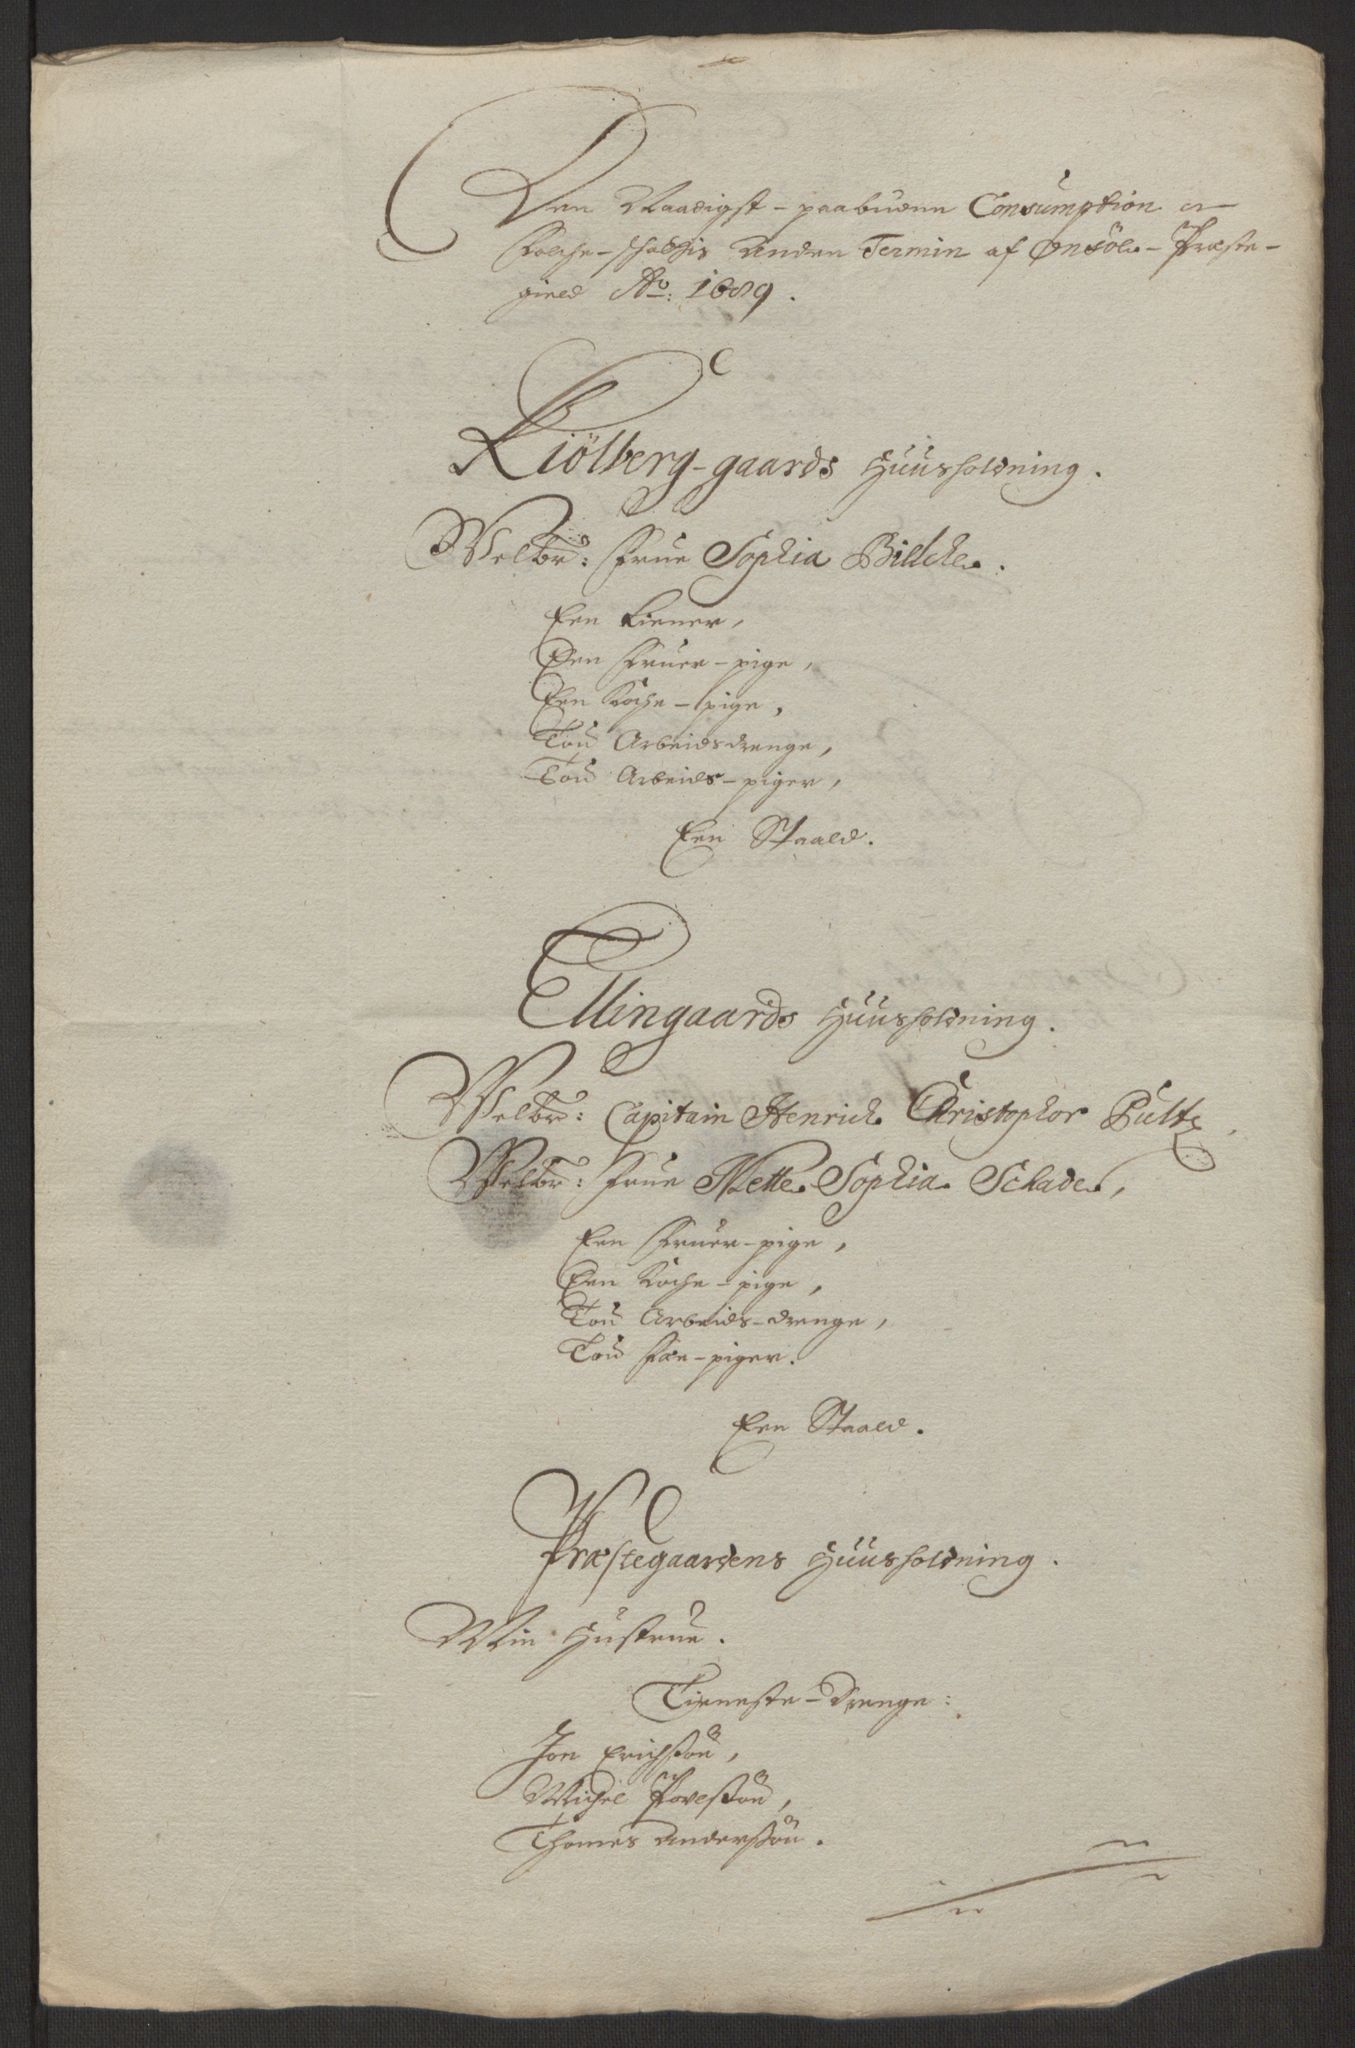 Den Naadigst-paabudenn Consumption oc
Folche-schattis Anden Termin af Onsöe-Præste-
gield Ao: 1689.
Kiölberg-gaards Huusholdning.
Welbr: Frue Sophia Bilche.
Een tiener,
Een Fruer-pige,
Een Koche-pige,
Tou Arbeidsdrenge,
Tou Arbeids-piger,
Een Staald.
Ellingaards Huusholdning.
Welbr: Capitain Henrich Christophor Pultz,
Welbr: Frue Mette Sophia Schade,
Een Fruer-pige,
Een Koche-pige,
Tou Arbeids-drenge,
Tou Fæe-piger.
Een Staald.
Præstegaardens Huusholdning.
Min Hustrue.
Tieneste-Drenge:
Jon Erichssön,
Michel Povelssön,
Thomes Anderssön.